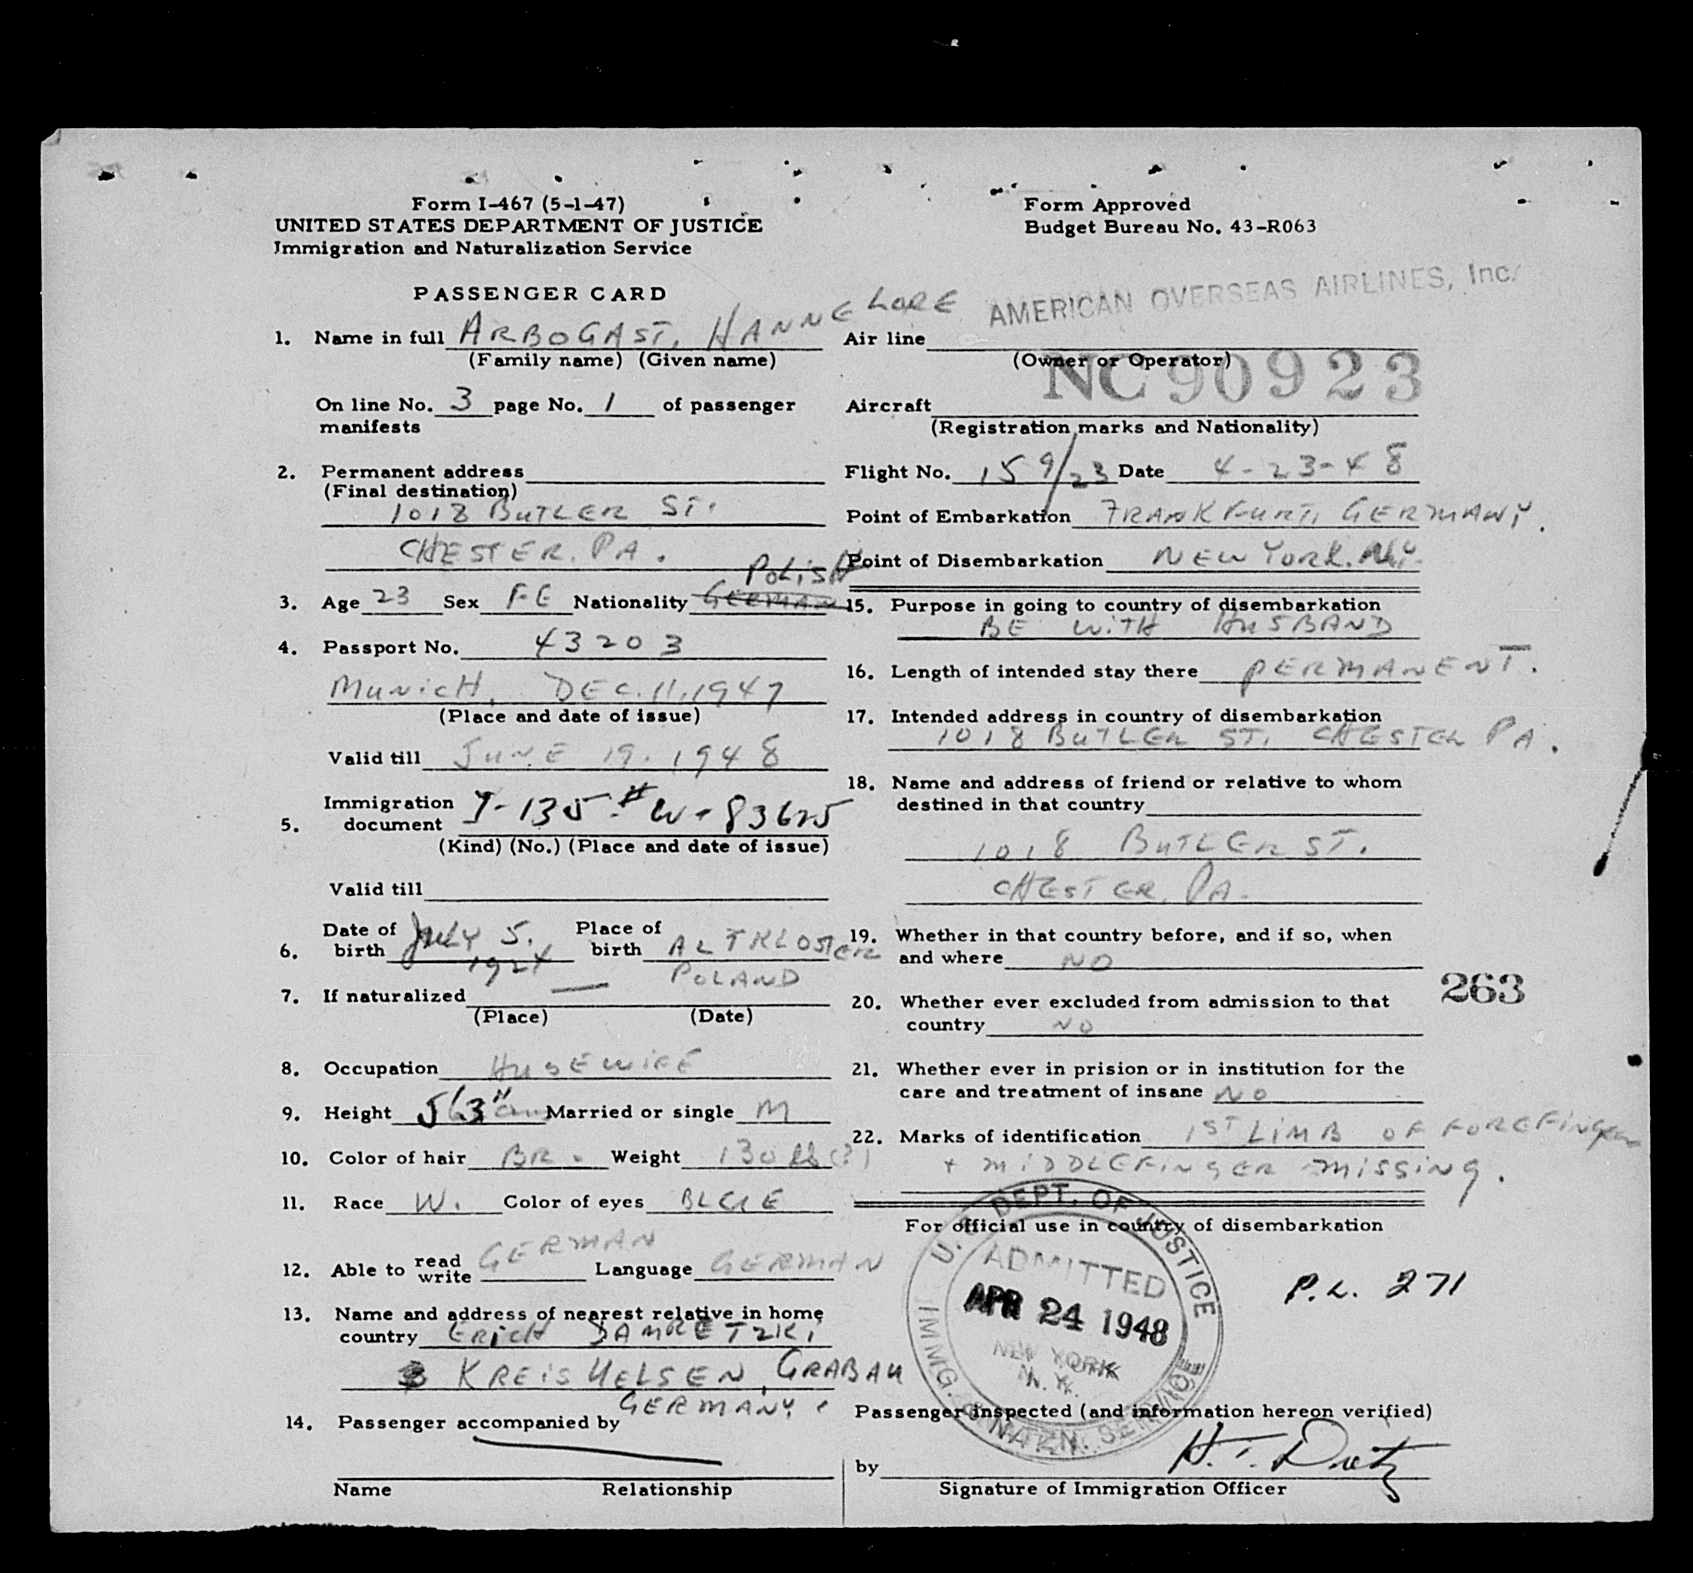 Form I-467 (5-1-47)
UNITED STATES DEPARTMENT OF JUSTICE
Immigration and Naturalization Service
Form Approved
Budget Bureau No. 43-R063
PASSENGER CARD
AMERICAN OVERSEAS AIRLINES, Inc.
1. Name in full ARBOGAST, HANNELORE
(Family name) (Given name)
On line No. 3 page No. 1 of passenger
manifests
2. Permanent address
(Final destination)
1018 BUTLER ST.
CHESTER. PA.
POLISH
3. Age 23 Sex FE Nationality GERMAN
4. Passport No. 43203
MUNICH, DEC. 11, 1947
(Place and date of issue)
Valid till JUNE 19. 1948
Immigration
5. document I-135 # W-83625
(Kind) (No.) (Place and date of issue)
Valid till
6. Date of birth JULY 5. 1924 Place of birth ALTKLOSTER
POLAND
7. If naturalized —
(Place) (Date)
8. Occupation HUSEWIFE
9. Height 5'3" cm Married or single M
10. Color of hair BR. Weight 130 lb (?)
11. Race W. Color of eyes BLUE
12. Able to read write GERMAN Language GERMAN
13. Name and address of nearest relative in home
country ERICH
KREIS UELSEN, GRABAU
GERMANY.
14. Passenger accompanied by
Name Relationship
Air line
(Owner or Operator)
NC90923
Aircraft
(Registration marks and Nationality)
Flight No. 159/23 Date 4-23-48
Point of Embarkation FRANKFURT, GERMANY.
Point of Disembarkation NEW YORK. N.Y.
15. Purpose in going to country of disembarkation
BE WITH HUSBAND
16. Length of intended stay there PERMANENT.
17. Intended address in country of disembarkation
1018 BUTLER ST. CHESTER PA.
18. Name and address of friend or relative to whom
destined in that country
1018 BUTLER ST.
CHESTER, PA.
19. Whether in that country before, and if so, when
and where NO
263
20. Whether ever excluded from admission to that
country NO
21. Whether ever in prision or in institution for the
care and treatment of insane NO
22. Marks of identification 1ST LIMB OF FOREFINGER
+ MIDDLEFINGER MISSING.
For official use in country of disembarkation
U.S. DEPT. OF JUSTICE
ADMITTED
APR 24 1948
NEW YORK
N.Y.
IMMG. & NATZN. SERVICE
P.L. 271
Passenger inspected (and information hereon verified)
by H. T. Dietz
Signature of Immigration Officer